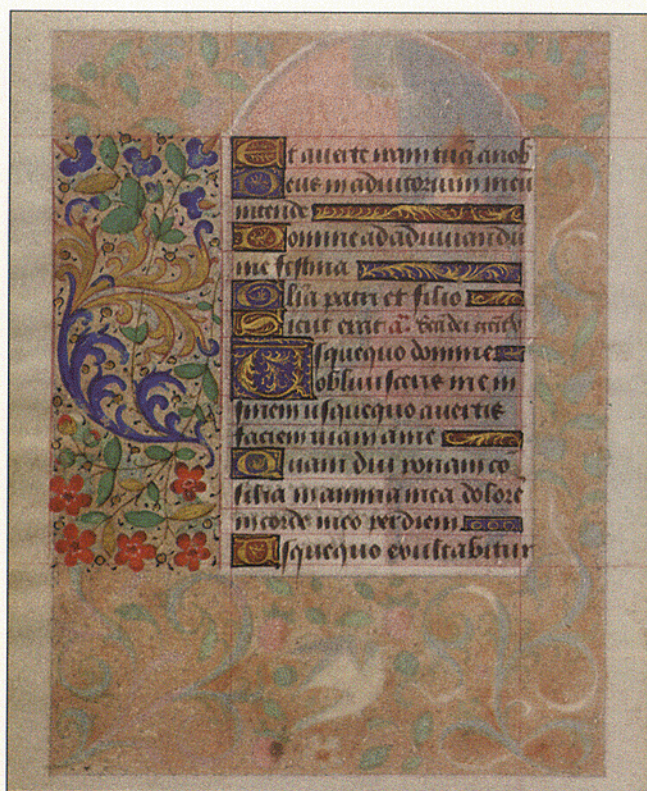 Et auerte iram tuā a nob
Deus in adiutorium meū
intende
Domine ad adiuuandū
me festina
Glia patri et filio
Sicut erat
Vsquequo domine
obliuisceris me in
finem usquequo auertis
faciem tuam a me
Quam diu ponam cō
silia in anima mea dolorē
in corde meo per diem
Vsquequo exultabitur